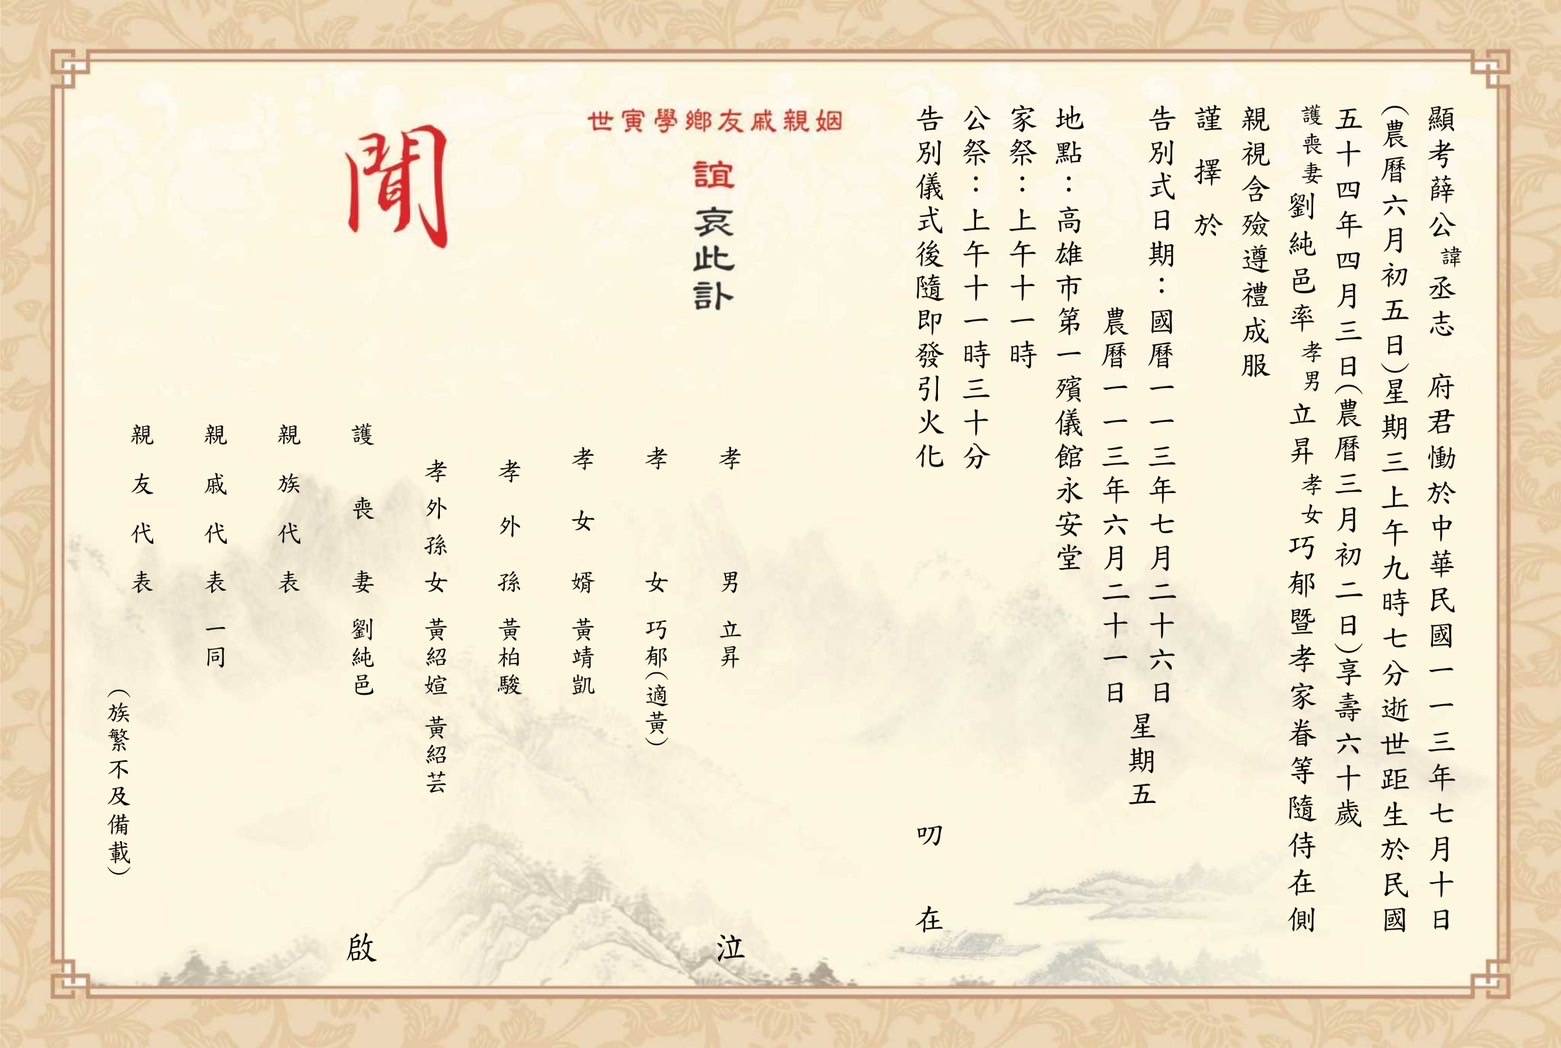 顯考薛公諱丞志　府君慟於中華民國一一三年七月十日
(農曆六月初五日)星期三上午九時七分逝世距生於民國
五十四年四月三日(農曆三月初二日)享壽六十歲
護喪妻劉純邑率孝男立昇孝女巧郁暨孝家眷等隨侍在側
親視含殮遵禮成服
謹擇於
告別式日期：國曆一一三年七月二十六日
農曆一一三年六月二十一日
星期五
地點：高雄市第一殯儀館永安堂
家祭：上午十一時
公祭：上午十一時三十分
告別儀式後隨即發引火化
叨在
姻親戚友鄉學寅世
誼哀此訃
聞
孝男 立昇
孝女 巧郁(適黃)
孝女婿 黃靖凱
孝外孫 黃柏駿
孝外孫女 黃紹媗 黃紹芸
護喪妻 劉純邑
親族代表
親戚代表 一同
親友代表
(族繁不及備載)
泣
啟